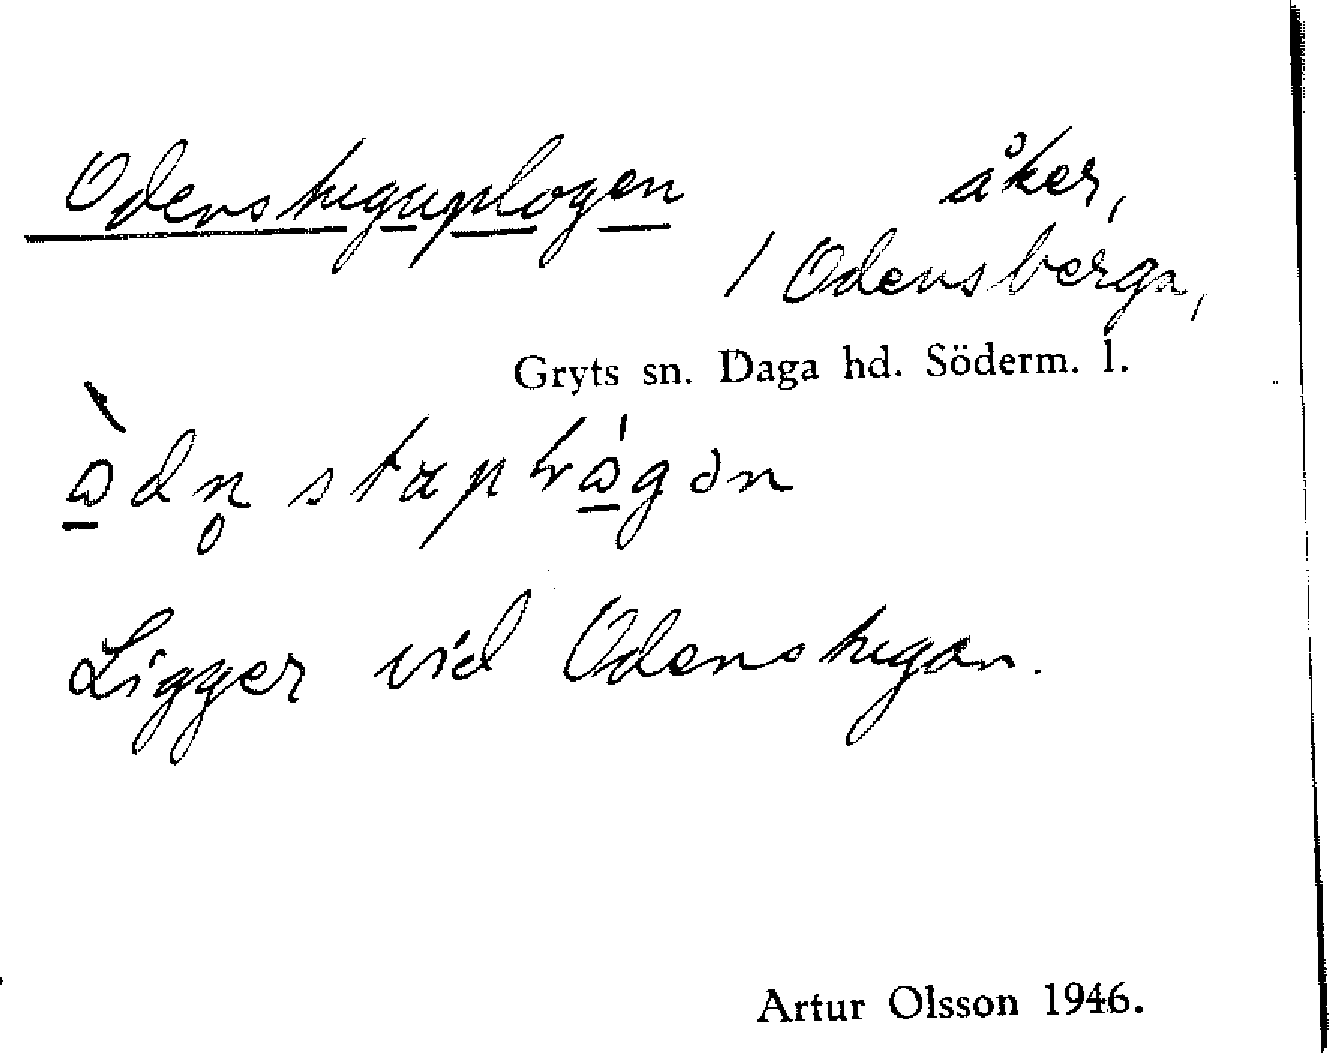 Odensteguplogen åker,
/ Odensberga,
Gryts sn. Daga hd. Söderm. l.
Ligger vid Odenstugan.
Artur Olsson 1946.